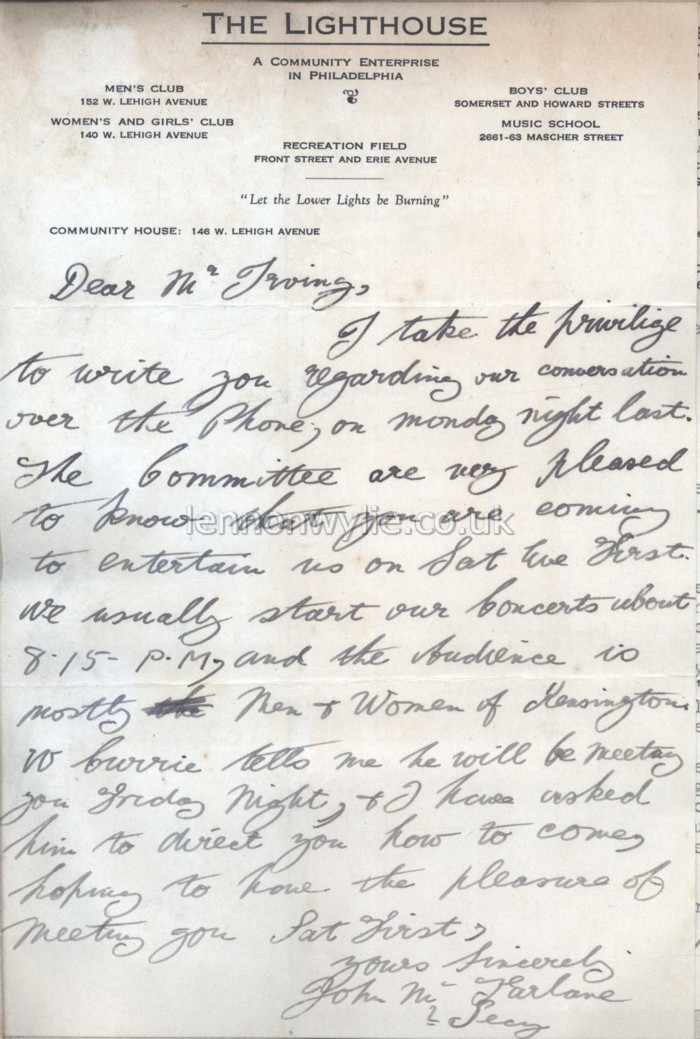 THE LIGHTHOUSE
A COMMUNITY ENTERPRISE
IN PHILADELPHIA
MEN'S CLUB
152 W. LEHIGH AVENUE
WOMEN'S AND GIRLS' CLUB
140 W. LEHIGH AVENUE
BOYS' CLUB
SOMERSET AND HOWARD STREETS
MUSIC SCHOOL
2661-63 MASCHER STREET
RECREATION FIELD
FRONT STREET AND ERIE AVENUE
"Let the Lower Lights be Burning"
COMMUNITY HOUSE: 146 W. LEHIGH AVENUE
Dear Mr Irving,
I take the privilige
to write you regarding our conversation
over the Phone, on monday night last.
The Committee are very pleased
to know that you are coming
lennonwylie.co.uk
to entertain us on Sat Eve First.
we usually start our Concerts about
8-15- P.M, and the Audience is
mostly the Men & Women of Kensington.
W Currie tells me he will be meeting
you Friday Night, & I have asked
him to direct you how to come,
hoping to have the pleasure of
meeting you Sat First,
yours Sincerely
John Mc Farlane
Secy